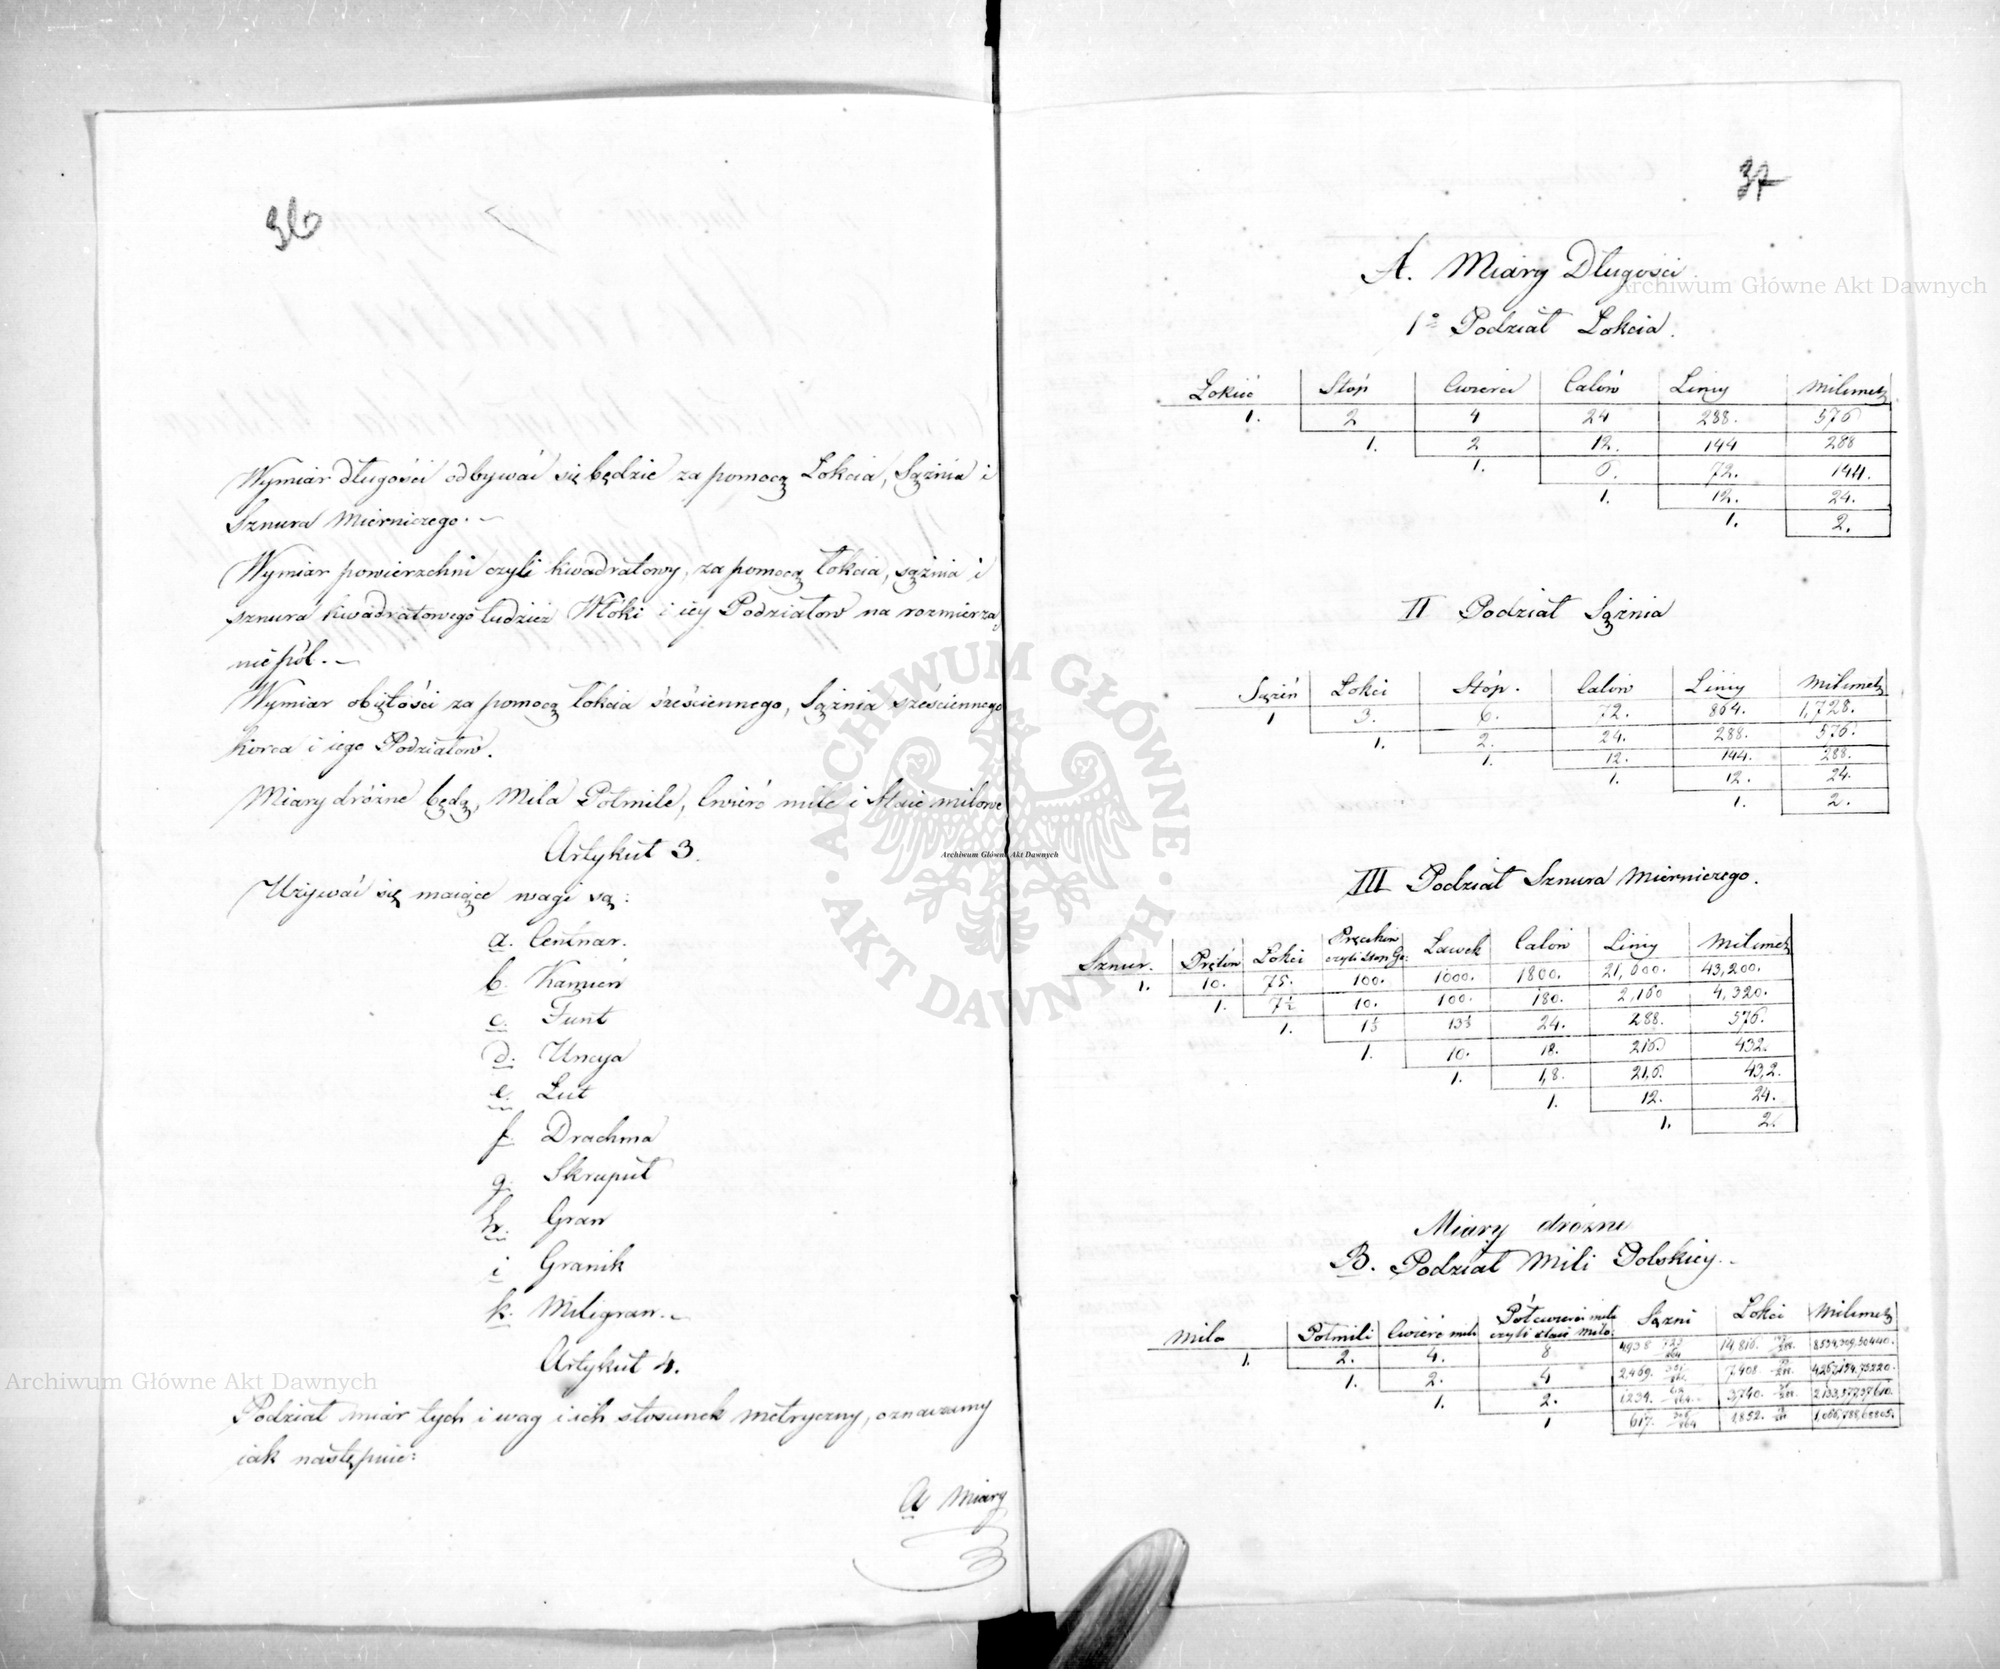 36
Wymiar długości odbywać się będzie za pomocą Łokcia, Sążnia i
Sznura Mierniczego.
Wymiar powierzchni czyli kwadratowy, za pomocą łokcia, sążnia i
sznura kwadratowego tudzież Włóki i iey Podziałow na rozmierza-
nie pól.
Wymiar obiętości za pomocą łokcia sześciennego, Sążnia sześciennego
korca i iego Podziałow.
Miary dróżne będą, Mila Półmile, Cwierć mile i Staie milowe
Artykuł 3.
Używać się maiące wagi są:
a. Centnar.
b. Kamień
c. Funt
d. Uncya
e. Łut
f. Drachma
g. Skrupuł
h. Gran
i Granik
k. Miligran.
Artykuł 4.
Podział miar tych i wag i ich stosunek metryczny, oznaczamy
iak następuie:
A Miary
37
A. Miary Długości
1° Podział Łokcia.
Łokieć Stóp Cwierci Calów Liniy Milimetr
1. 2 4 24 288. 576
1. 2 12. 144 288
1. 6. 72. 144.
1. 12. 24.
1. 2.
II Podział Sążnia
Sążeń Łokci Stóp. Calów Liniy Milimetr
1 3. 6. 72. 864. 1,728.
1. 2. 24. 288. 576.
1. 12. 144. 288.
1. 12. 24.
1. 2.
III Podział Sznura Mierniczego.
Sznur. Prętów Łokci Pręcików czyli Stop Ge: Ławek Calów Liniy Milimetr
1. 10. 75. 100. 1000. 1800. 21,600. 43,200.
1. 7½ 10. 100. 180. 2,160 4,320.
1. 1⅓ 13⅓ 24. 288. 576.
1. 10. 18. 216. 432.
1. 1,8. 21,6. 43,2.
1. 12. 24.
1. 2.
Miary dróżne
B. Podział Mili Polskiey.
Mila Półmili Cwierć mili Półcwierci mili czyli staie Milo: Sążni Łokci Milimetr
1. 2. 4. 8 4938 14,816.
1. 2. 4 2,469. 7,408.
1. 2. 1234.
1 617. 1852.
Archiwum Główne Akt Dawnych
ARCHIWUM GŁÓWNE AKT DAWNYCH
Archiwum Główne Akt Dawnych
Archiwum Główne Akt Dawnych